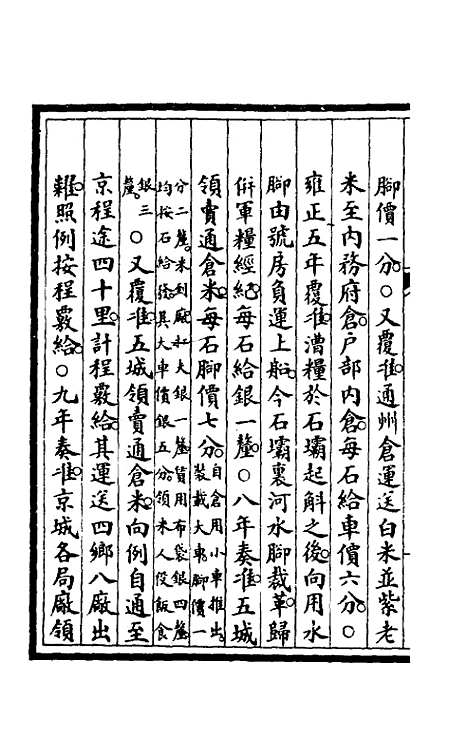 腳價一分○又覆准通州倉運送白米並紫老
米至內務府倉戶部內倉每石給車價六分○
雍正五年覆准漕糧於石壩起斛之後向用水
腳由號房負運上船今石壩裏河水腳裁革歸
倂軍糧經紀每石給銀一釐○八年奏准五城
領賣通倉米每石腳價七分自倉用小車推出裝載大車腳價一
分二釐米到廠扛大銀一釐賃用布袋銀四釐均按石給發其大車價銀五分領米人役飯食
銀三釐○又覆准五城領賣通倉米向例自通至
京程途四十里計程覈給其運送四鄉八廠出
糶照例按程覈給○九年奏准京城各局廠領